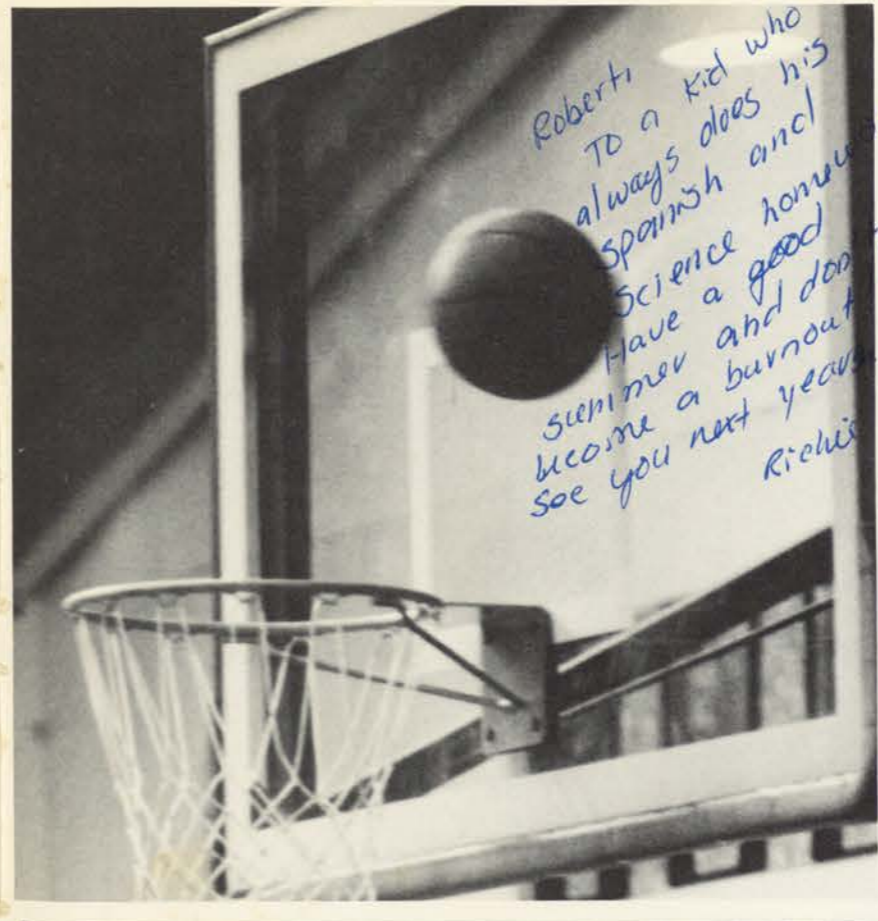 Robert,
To a kid who
always does his
Spanish and
Science
Have a good
summer and don't
become a burnout
see you next year
Richie